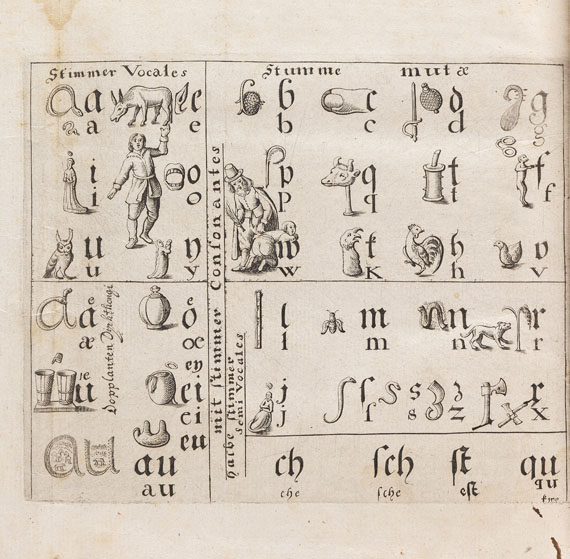 Stimmer Vocales
a a e
a e
i o
i o
u y
u y
Stumme mutæ
b c d g
b c d g
p q t f
p q t f
w k h v
w k h v
mit stimmer Consonantes
halbe stimmer
semi vocales
Dopplanten Dyphthongi
æ
œ
ei
ei
eu
au au
au
l m n r
l m n r
j ſ s z x
j ſ s z x
ch ſch ſt qu
che sche est qu